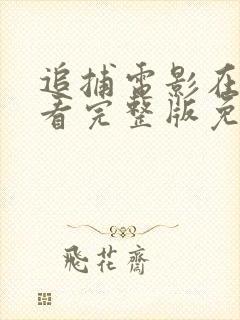 追捕电影在
看完整版免
飛花齋